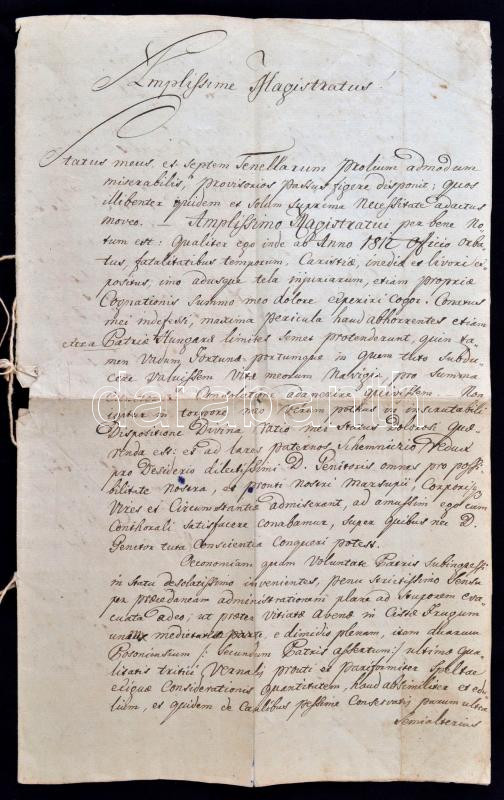 Amplissime Magistratus!
Status meus, et septem Tenellarum prolium admodum
miserabilis, provisorios passus figere disponit; quos
illibenter quidem et solum suprema Necessitate adactus
moveo. — Amplissimo Magistratui per bene No-
tum est: Qualiter ego inde ab Anno 1812 officio Orba-
tus, fatalitatibus temporum, Caristiae, inediae et livori ex-
positus, imo adusque tela injuriarum, etiam propriae
Cognationis summo meo dolore experiri Cogor. Conatus
mei indefessi, maxima pericula haud abhorrentes etiam
extra Patriae Hungarae limites semet protenderunt, quin ta-
men Vadum Fortunae portumque in quem tuto Subdu-
cere Valuissem Vitae meorum Navigia, pro summa
Consolatione adaperire quivissem. Non
igitur in torpore meo Verum potius in inscrutabili
Dispositione Divina ratio mei Status dolorosi quae-
renda est: et ad lares paternos Schemniczio redux
pro Desiderio dilectissimi D. Genitoris omnes pro possi-
bilitate Nostra, et prout nostri Marsupii, Corporisq
Vires et Circumstantiae admiserant, ad amussim ego cum
Conthorali Satisfacere conabamur, super quibus nec D.
Genitor tuta Conscientia Conqueri potest.
Oeconomiam quam Voluntate Patris Subingressi
in statu desolatissimo invenientes, penu strictissimo Sensu
per praecedaneam administrationem plane ad Stuporem eva-
cuata adeo; ut praeter Vitiatae Avenae in Cista Frugum
unam medietatem parte, e dimidio plenam, item duarum
Posoniensium /: Secundum Patris assertum :/ ultimae qua-
litatis tritici Vernalis prout et pariformiter Speltae
exiguae Considerationis quantitatem, haud absimiliter et edu-
lium, et quidem de Caulibus pessime Conservatis parum ultra
Semialterius
darabanth